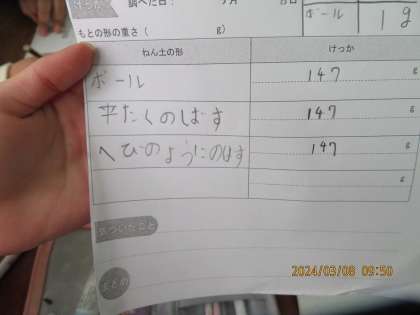 調べた日： 月 日
ボール 19
もとの形の重さ（ g）
ねん土の形 けっか
ボール 147 g
平たくのばす 147 g
へびのようにのばす 147 g
g
気づいたこと
まとめ
2024/03/08 09:50